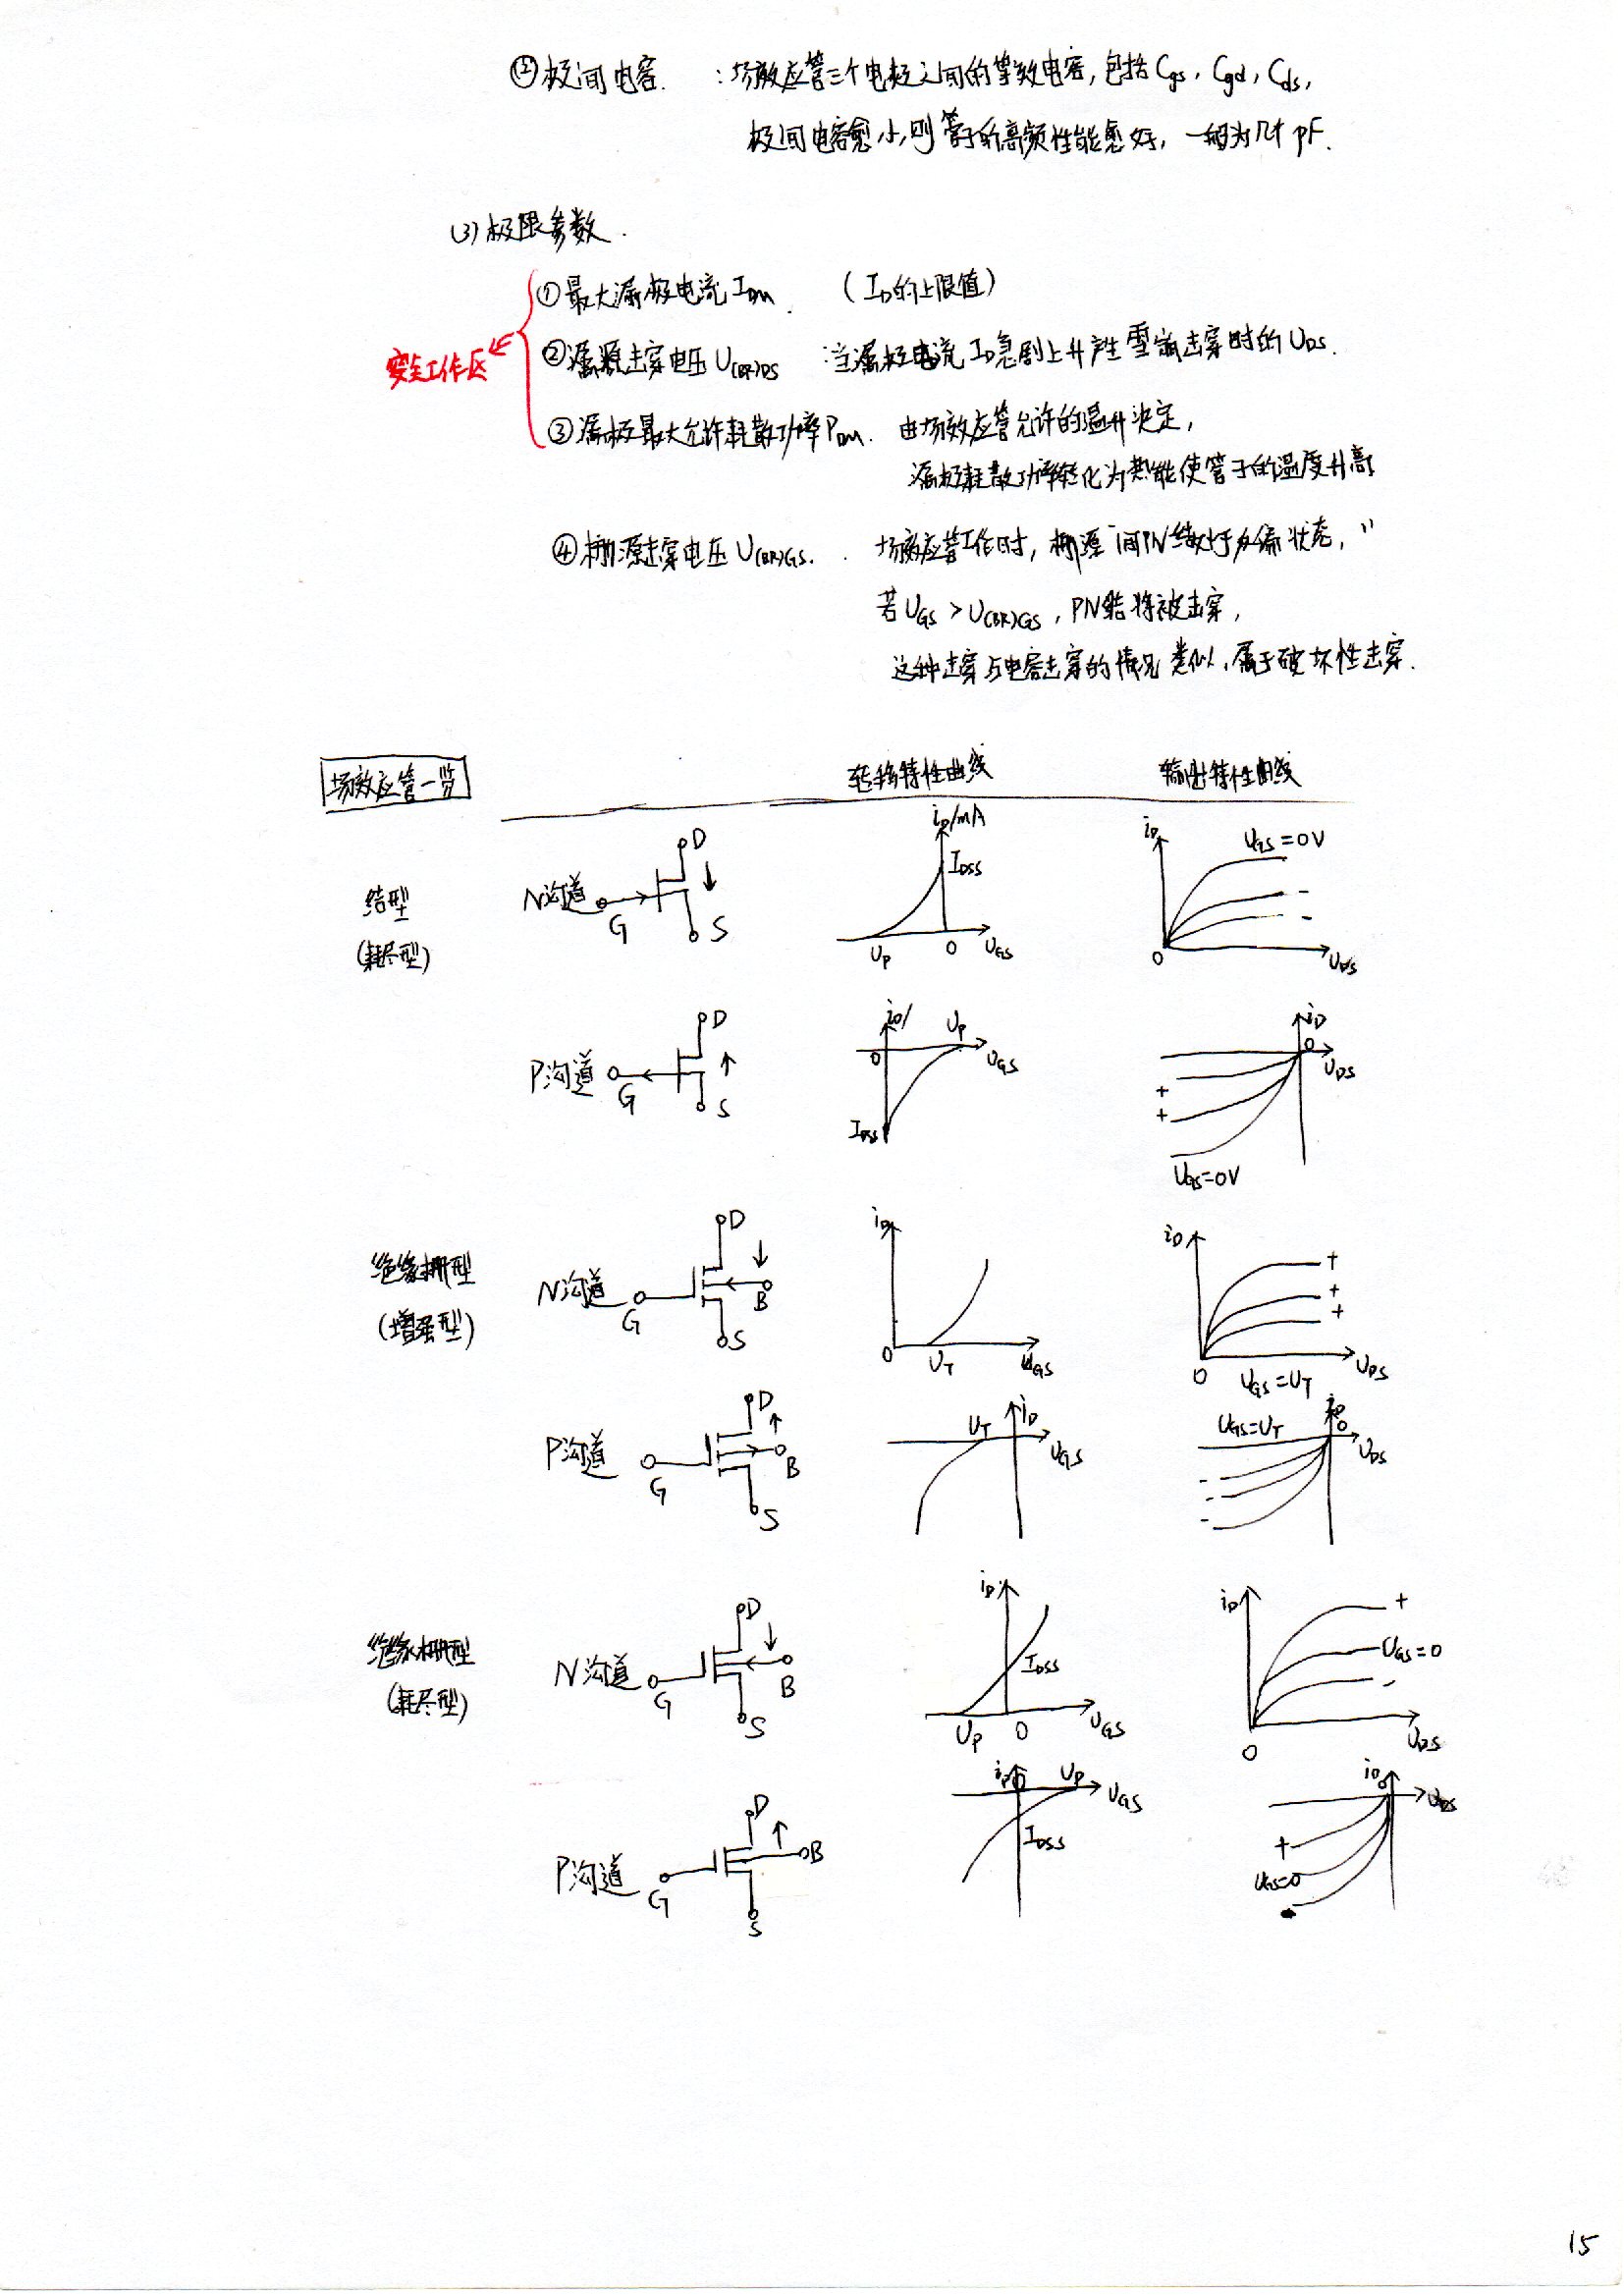 ②极间电容. :场效应管三个电极之间的等效电容,包括Cgs,Cgd,Cds,
极间电容愈小,则管子的高频性能愈好,一般为几个pF.
(3)极限参数.
①最大漏极电流IDM. (ID的上限值)
②漏源击穿电压U(BR)DS :当漏极电流ID急剧上升产生雪崩击穿时的UDS.
安全工作区
③漏极最大允许耗散功率PDM. 由场效应管允许的温升决定,
漏极耗散功率转化为热能使管子的温度升高
④栅源击穿电压U(BR)GS. 场效应管工作时,栅源间PN结处于反偏状态,
若UGS>U(BR)GS,PN结将被击穿,
这种击穿与电容击穿的情况类似,属于破坏性击穿.
场效应管一览 转移特性曲线 输出特性曲线
结型
(耗尽型)
N沟道 G D S iD/mA IDSS UP 0 UGS iD UGS=0V - - 0 UDS
P沟道 G D S iD/ 0 UP UGS IDSS iD 0 UDS + + UGS=0V
绝缘栅型
(增强型)
N沟道 G D B S iD 0 UT UGS iD + + + 0 UGS=UT UDS
P沟道 G D B S UT iD UGS UGS=UT iD 0 UDS - - -
绝缘栅型
(耗尽型)
N沟道 G D B S iD IDSS UP 0 UGS iD + UGS=0 - 0 UDS
P沟道 G D B S iD 0 UP UGS IDSS iD 0 UDS + UGS=0
15